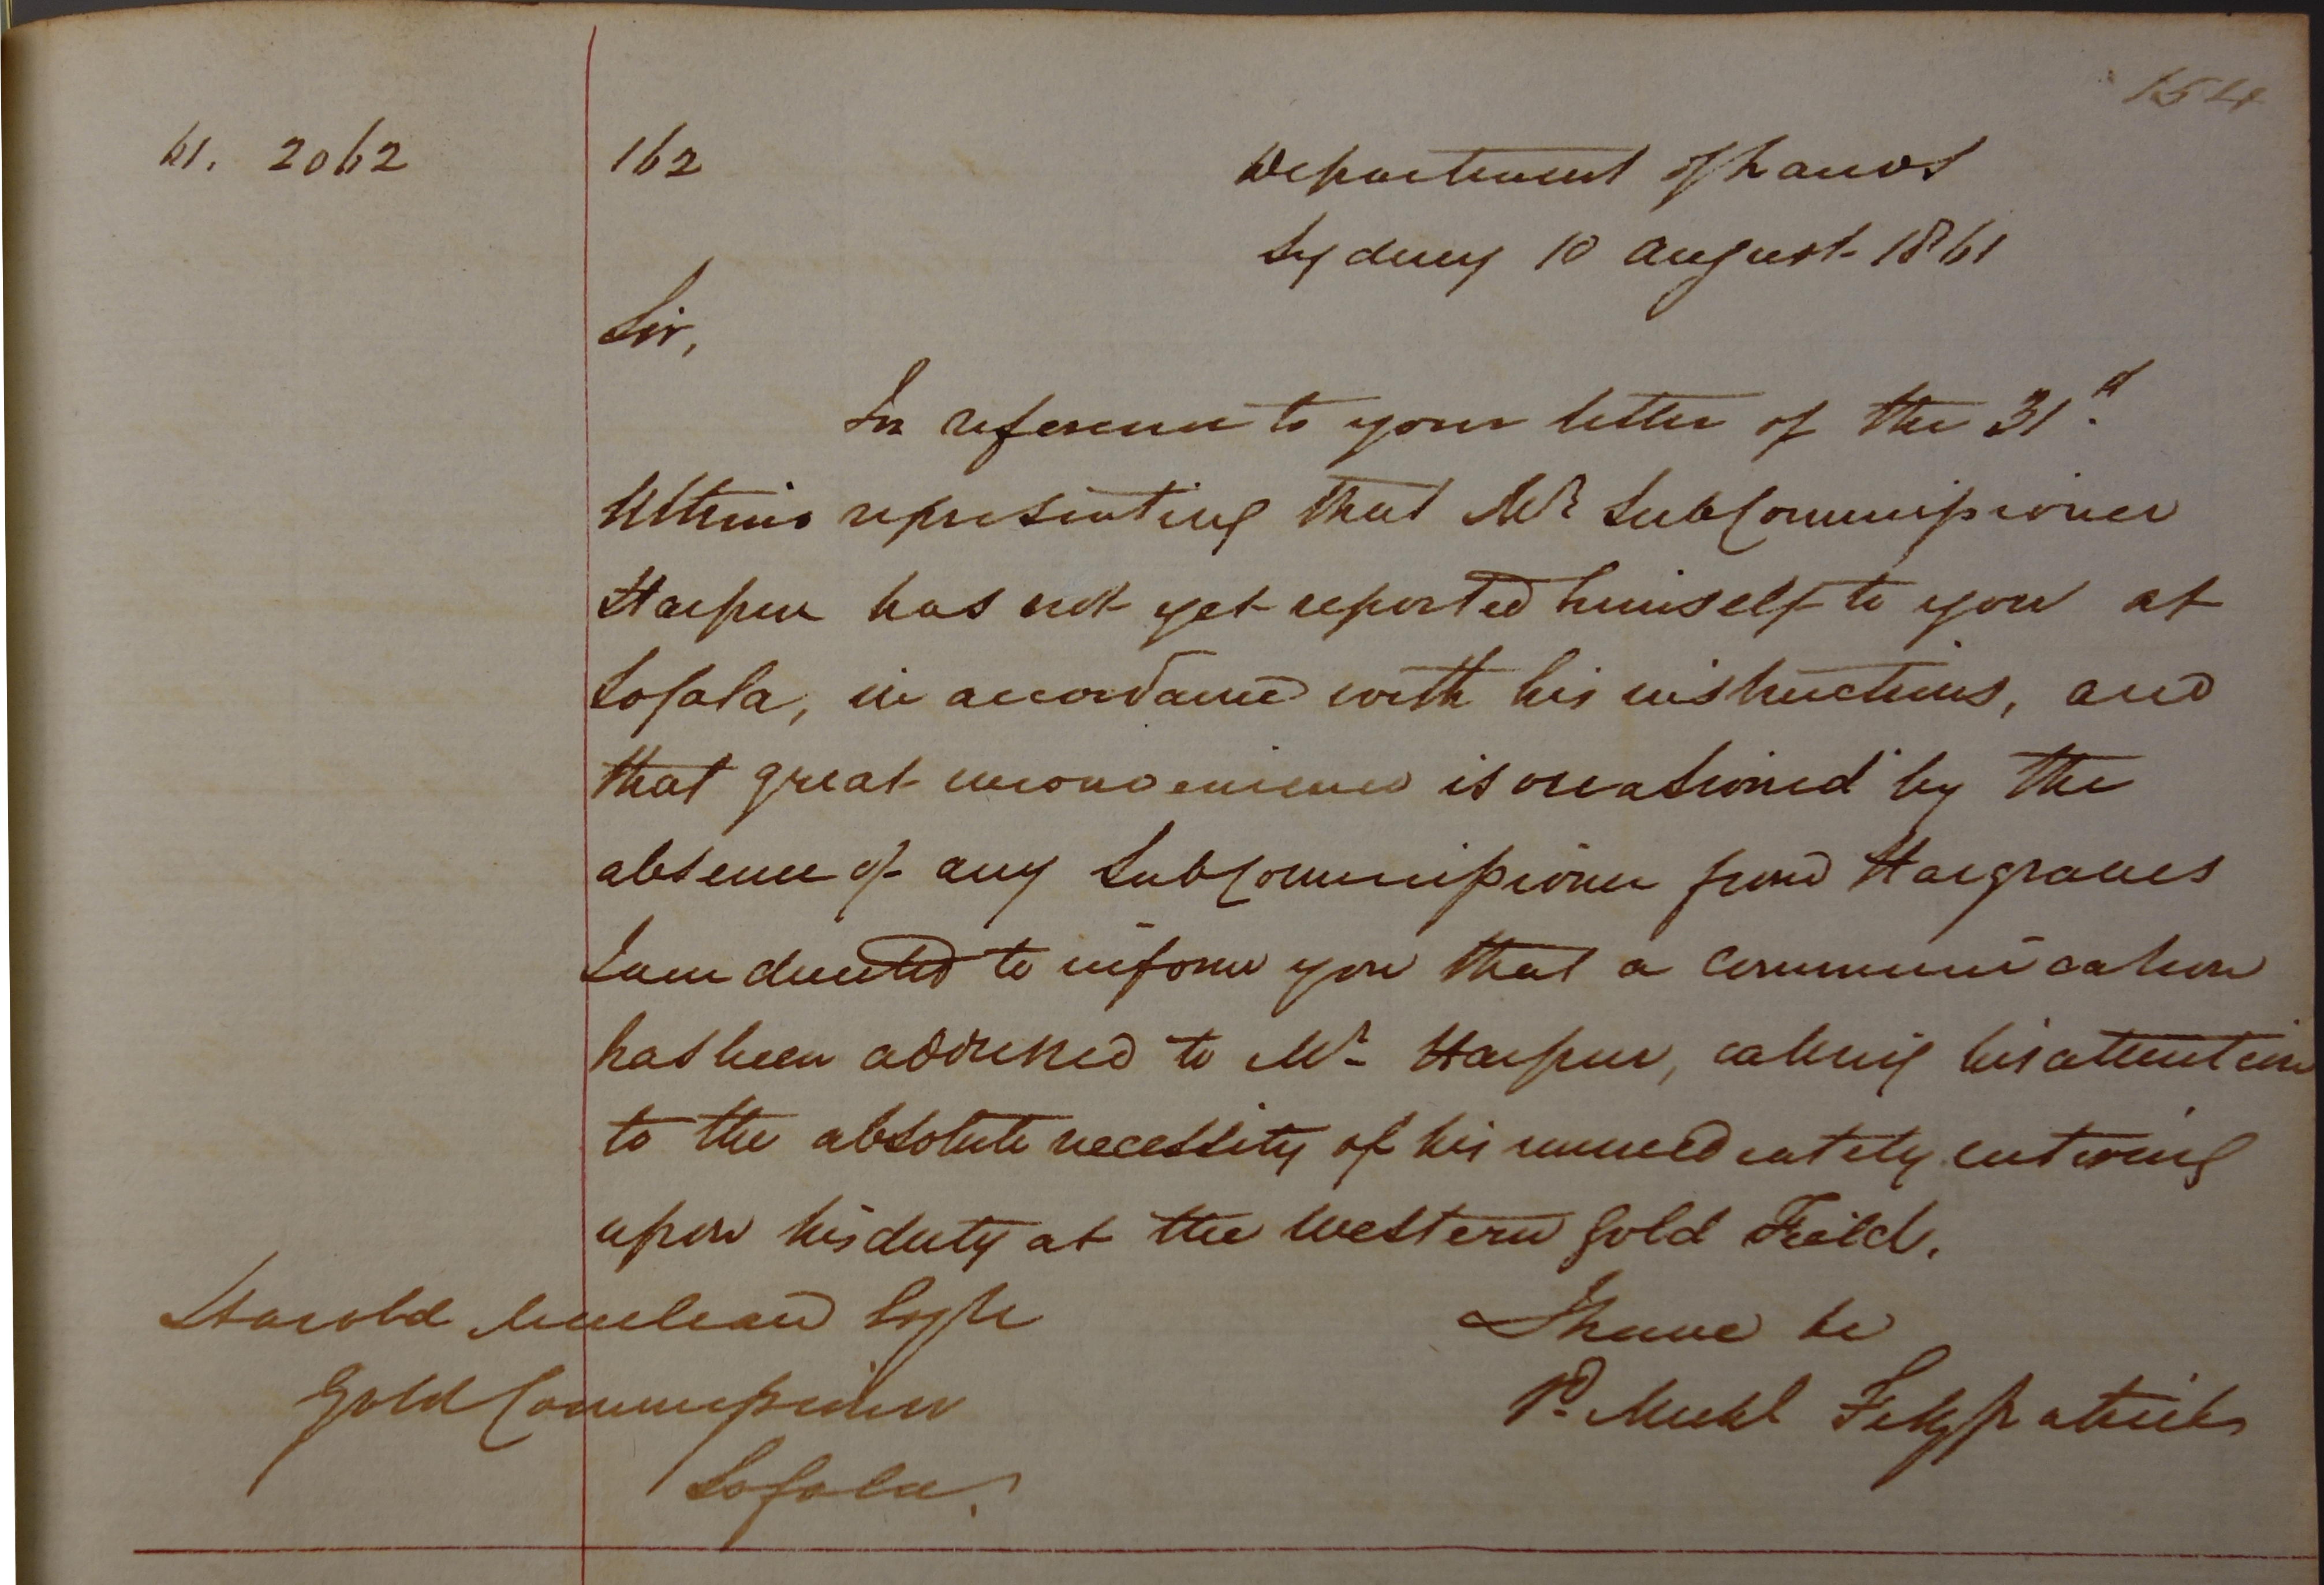 154
61. 2062
162
Department of Lands
Sydney 10 August 1861
Sir,
In reference to your letter of the 31st
Ultimo representing that Mr SubCommissioner
Harpur has not yet reported himself to you at
Sofala, in accordance with his instructions, and
that great inconvenience is occasioned by the
absence of any SubCommissioner from Hargraves
I am directed to inform you that a communication
has been addressed to Mr Harpur, calling his attention
to the absolute necessity of his immediately entering
upon his duty at the Western Gold Field.
I have &c
Sd. Michl Fitzpatrick
Harold Maclean Esqre
Gold Commissioner
Sofala.